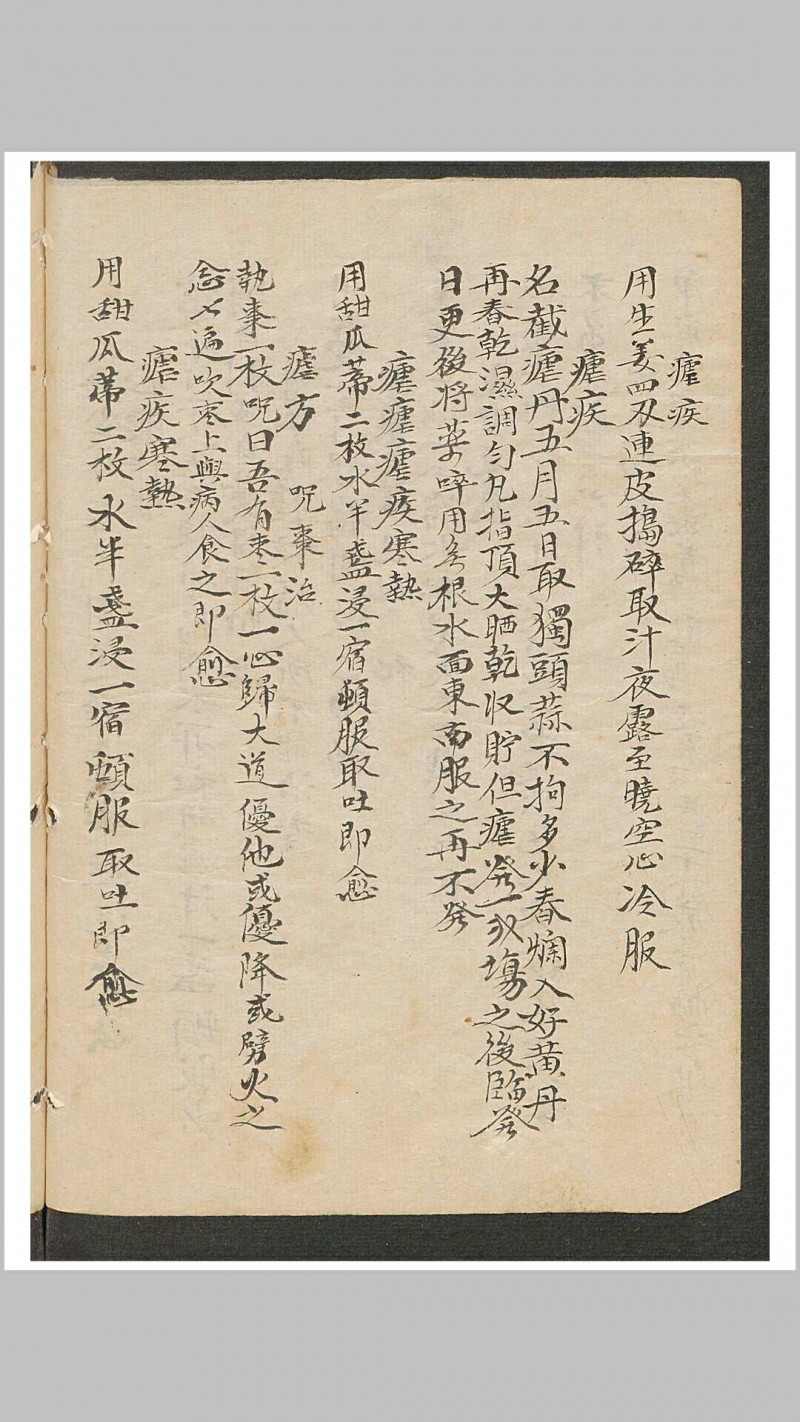 瘧疾
用生姜四刃連皮搗碎取汁夜露至曉空心冷服
瘧疾
名截瘧丹五月五日取獨頭蒜不拘多少舂爛入好黃丹
再舂乾濕調勻丸指頂大晒乾收貯但瘧發一二塲之後臨發
日更後將藥啐用無根水面東南服之再不發
瘧瘧瘧疾寒熱
用甜瓜蒂二枚水半盞浸一宿頓服取吐即愈
瘧方 呪棗治
執棗一枚呪曰吾有枣一枚一心歸大道優他或優降或劈火之
念七遍吹枣上與病人食之即愈
瘧疾寒熱
用甜瓜蒂二枚水半盞浸一宿頓服取吐即愈